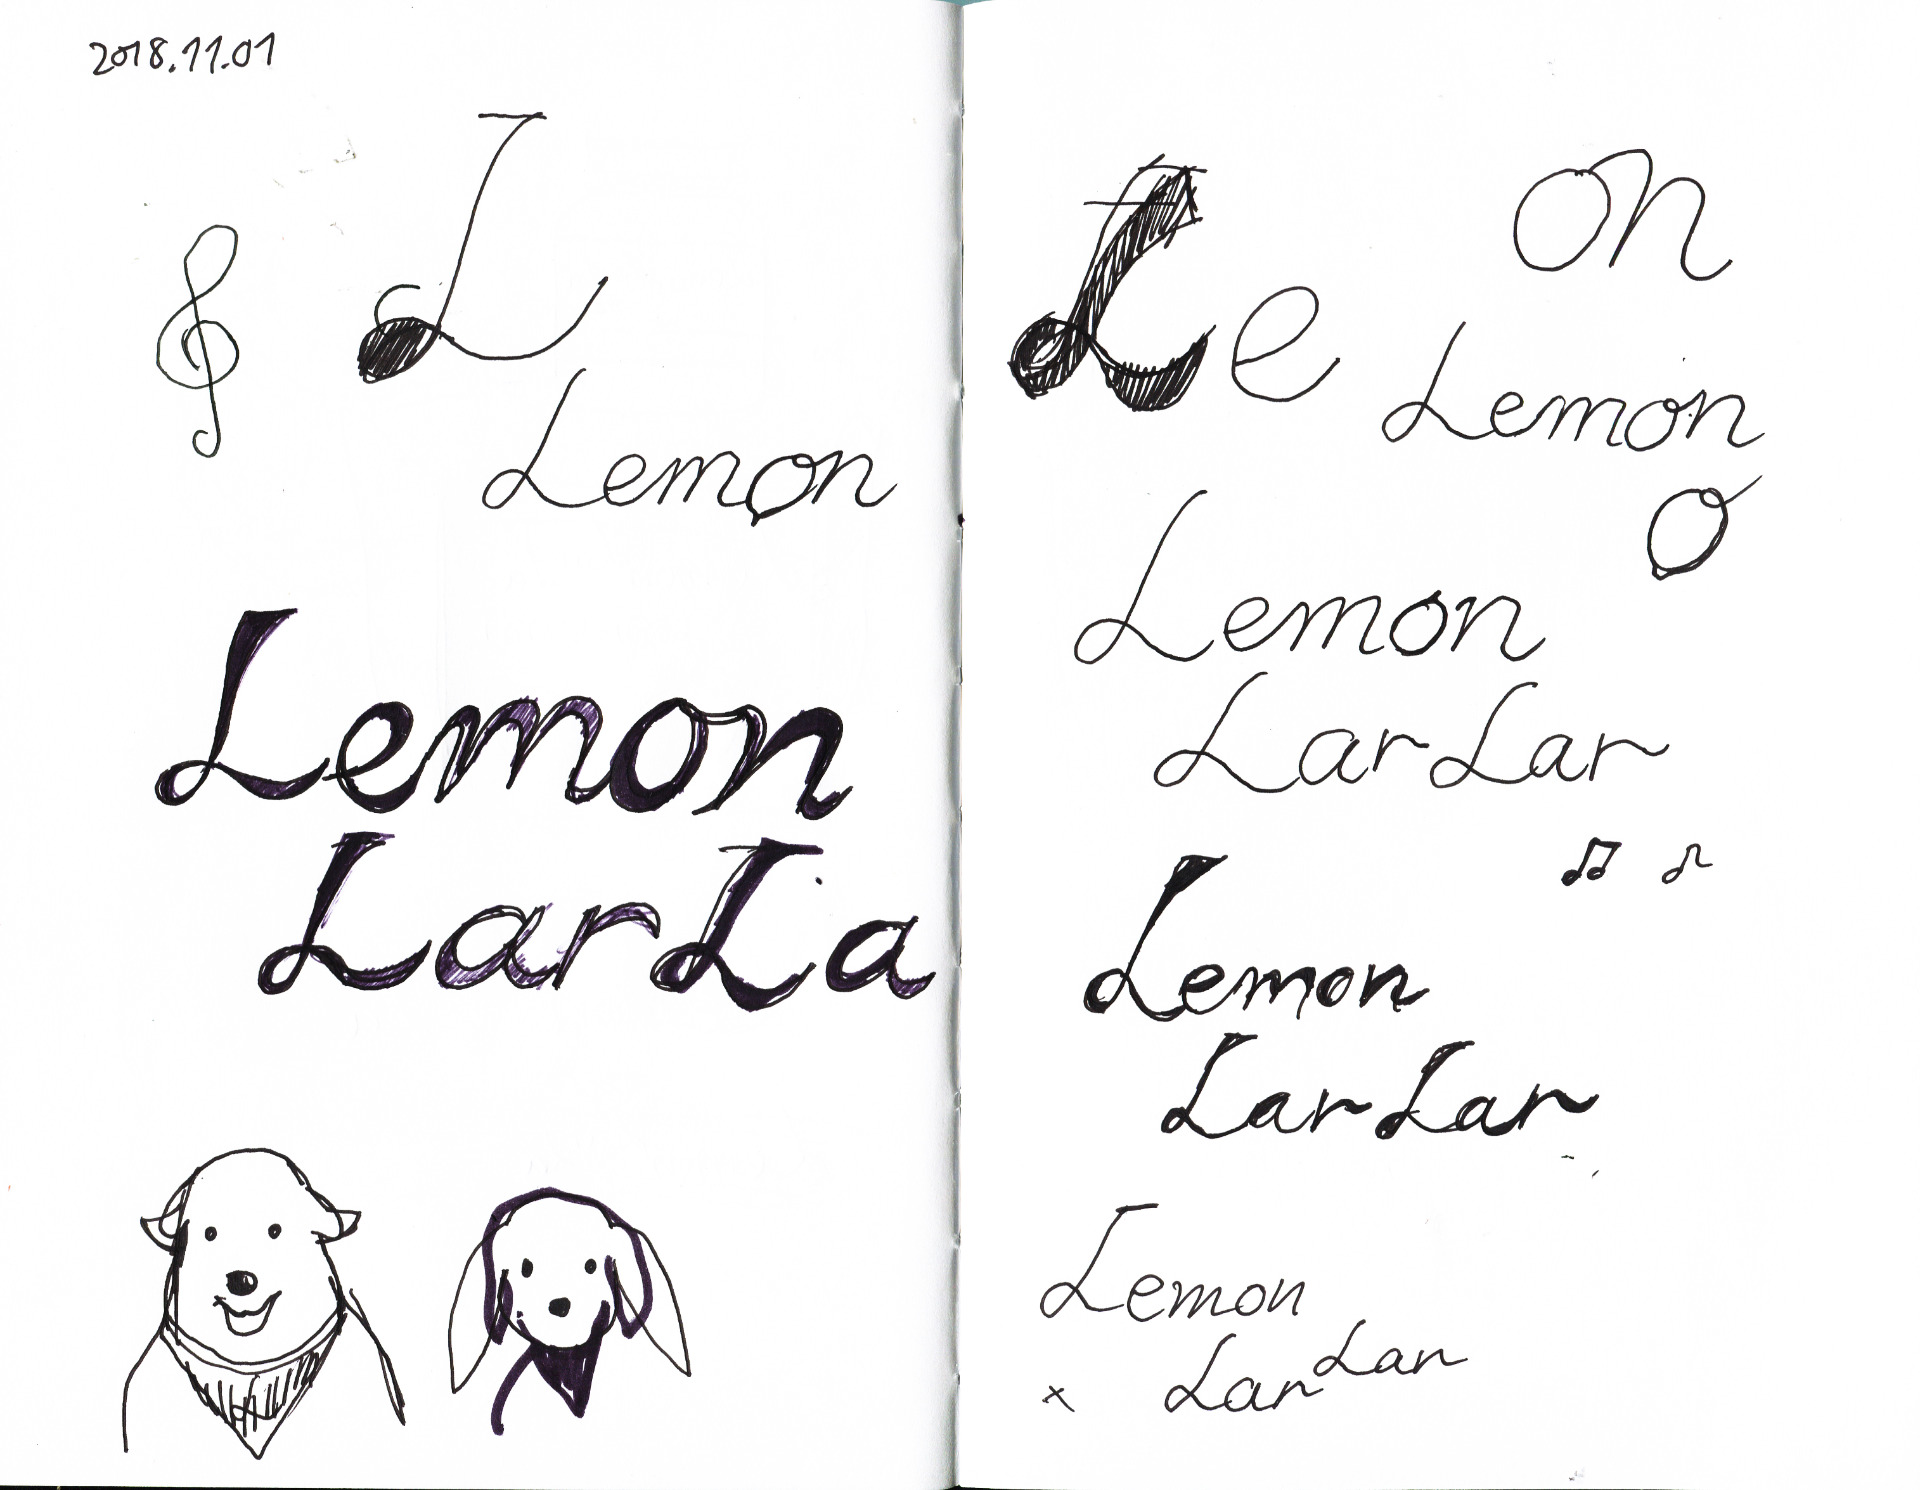 2018.11.01
L
Lemon
Lemon
LarLa
Le
on
Lemon
o
Lemon
LarLar
Lemon
LarLar
Lemon
LarLar
x